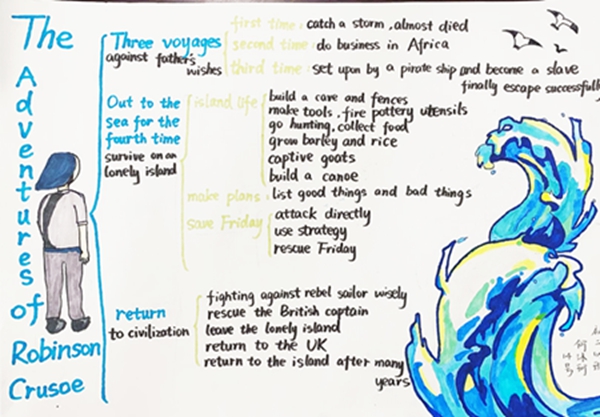 The
Adventures
of
Robinson
Crusoe
Three voyages
against father's
wishes
first time: catch a storm, almost died
second time: do business in Africa
third time: set upon by a pirate ship and become a slave
finally escape successfully
Out to the
sea for the
fourth time
survive on an
lonely island
island life
build a cave and fences
make tools, fire pottery utensils
go hunting, collect food
grow barley and rice
captive goats
build a canoe
make plans: list good things and bad things
save Friday
attack directly
use strategy
rescue Friday
return
to civilization
fighting against rebel sailor wisely
rescue the British captain
leave the lonely island
return to the UK
return to the island after many
years